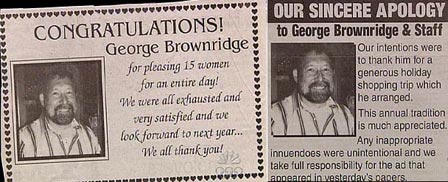 CONGRATULATIONS!
George Brownridge
for pleasing 15 women
for an entire day!
We were all exhausted and
very satisfied and we
look forward to next year...
We all thank you!
OUR SINCERE APOLOGY
to George Brownridge & Staff
Our intentions were
to thank him for a
generous holiday
shopping trip which
he arranged.
This annual tradition
is much appreciated.
Any inappropriate
innuendoes were unintentional and we
take full responsibility for the ad that
appeared in yesterday's papers.